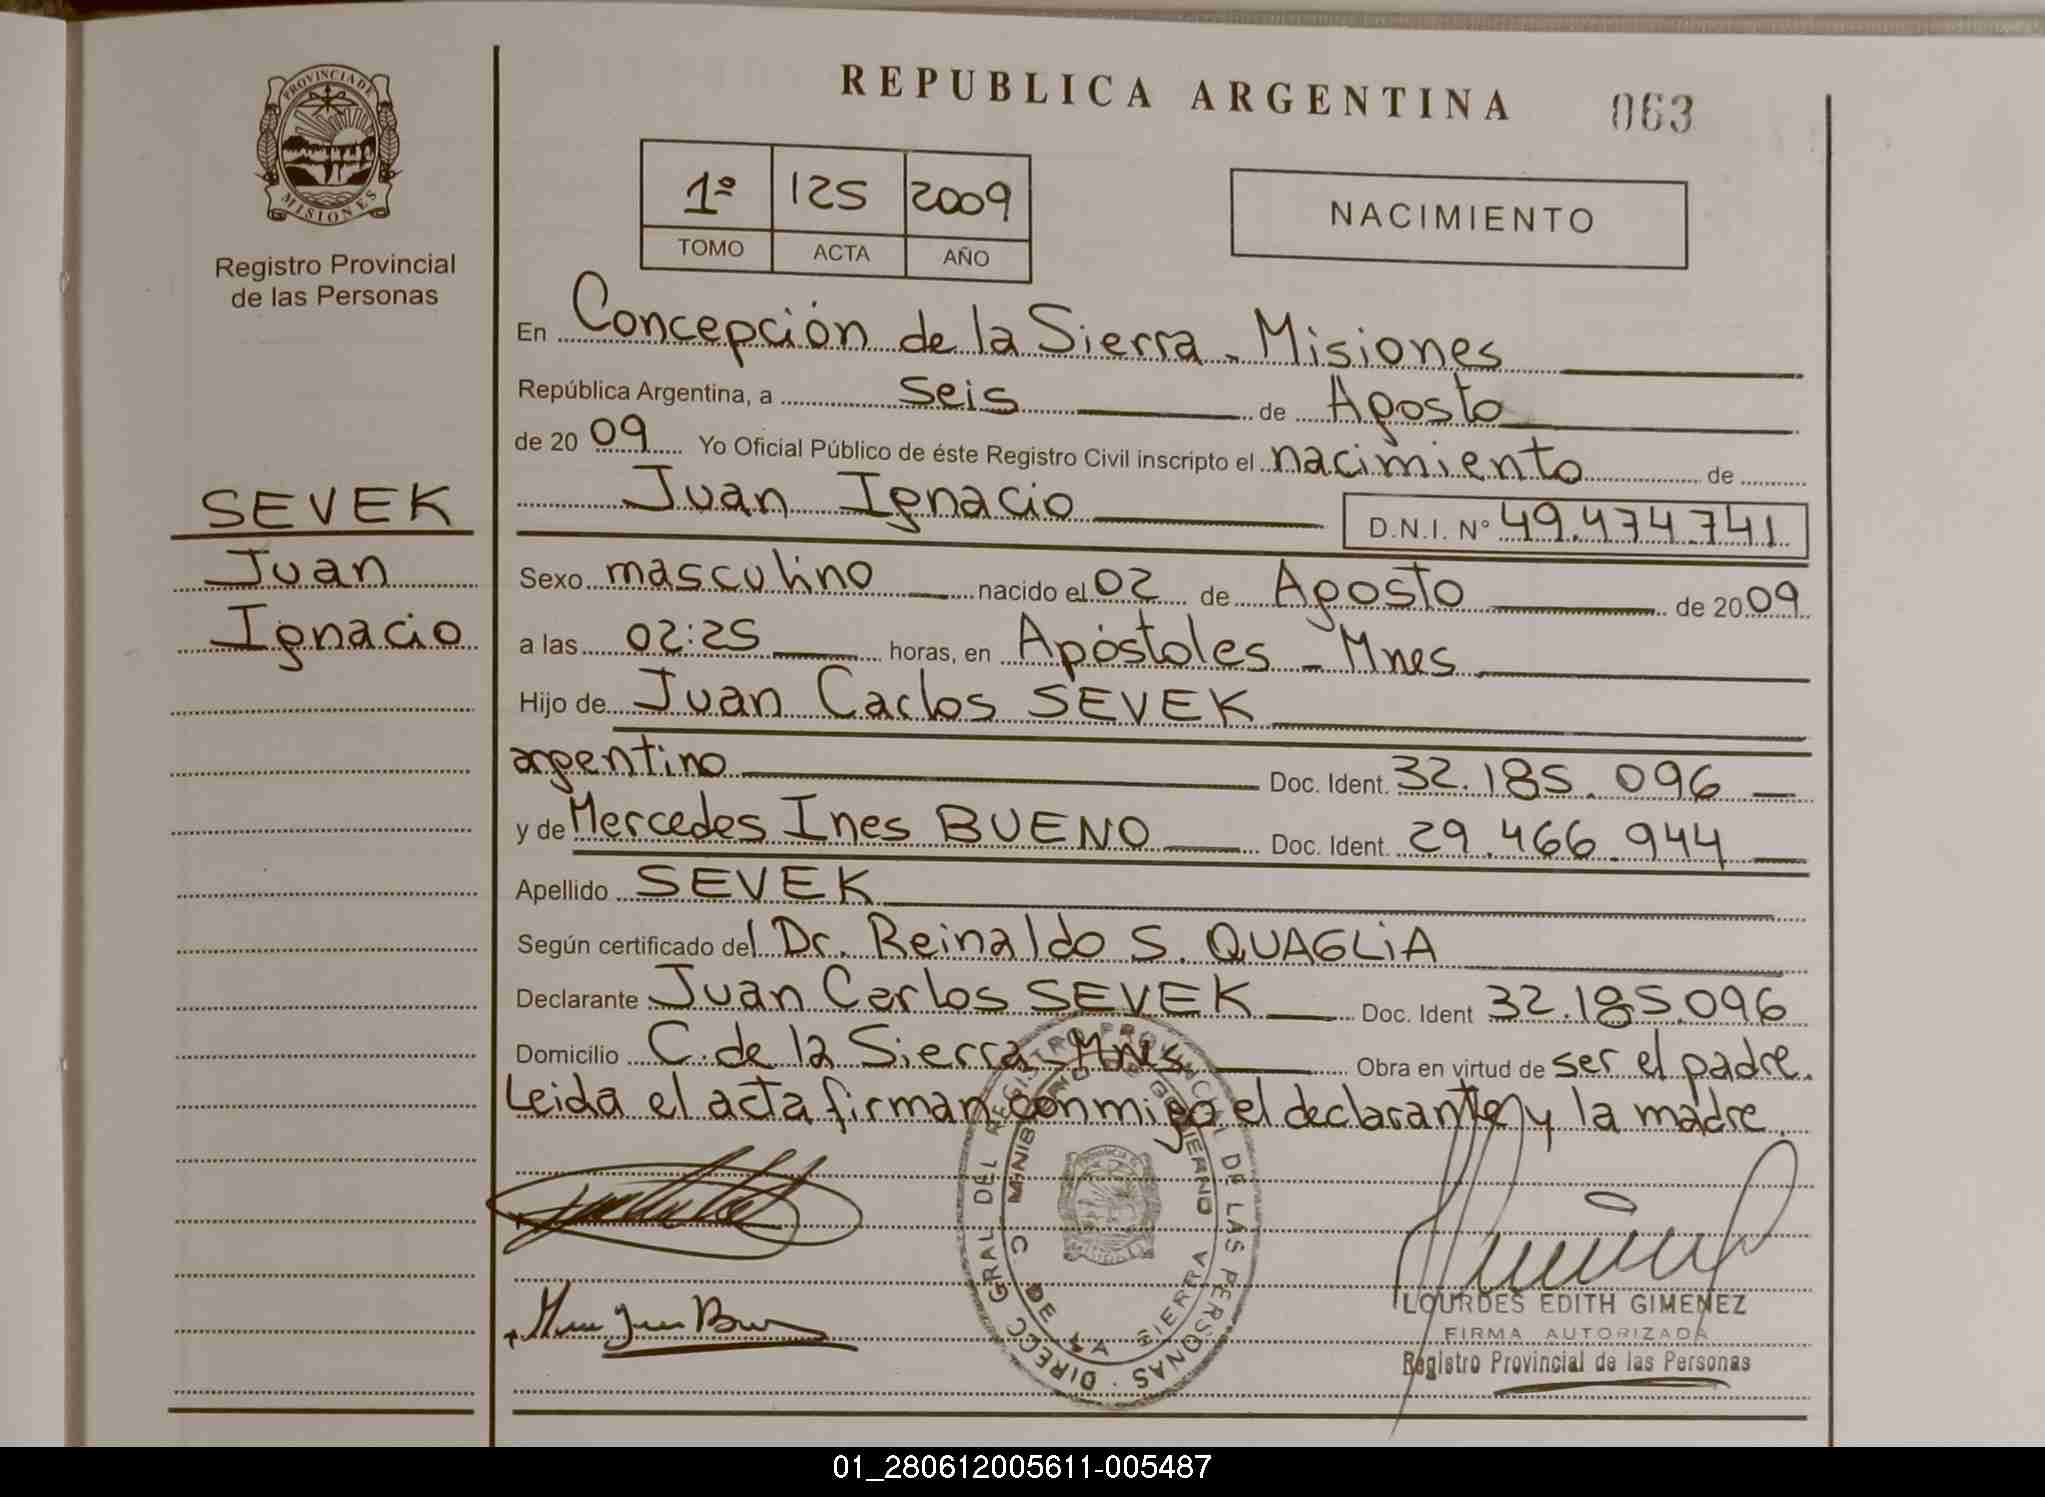 REPUBLICA ARGENTINA 063
PROVINCIA DE MISIONES
Registro Provincial
de las Personas
1º 125 2009
TOMO ACTA AÑO
NACIMIENTO
En Concepción de la Sierra - Misiones
República Argentina, a seis de Agosto
de 2009 Yo Oficial Público de éste Registro Civil inscripto el nacimiento de
Juan Ignacio D.N.I. Nº 49.474.741
SEVEK
Juan
Ignacio
Sexo masculino nacido el 02 de Agosto de 2009
a las 02:25 horas, en Apóstoles - Mnes
Hijo de Juan Carlos SEVEK
argentino Doc. Ident. 32.185.096
y de Mercedes Ines BUENO Doc. Ident. 29.466.944
Apellido SEVEK
Según certificado del Dr. Reinaldo S. QUAGLiA
Declarante Juan Carlos SEVEK Doc. Ident 32.185.096
Domicilio C. de la Sierra - Mnes Obra en virtud de ser el padre.
Leida el acta firman conmigo el declarante y la madre.
DIRECC GRAL DEL REGISTRO PROVINCIAL DE LAS PERSONAS
C DE LA SIERRA
LOURDES EDITH GIMENEZ
FIRMA AUTORIZADA
Registro Provincial de las Personas
01_280612005611-005487